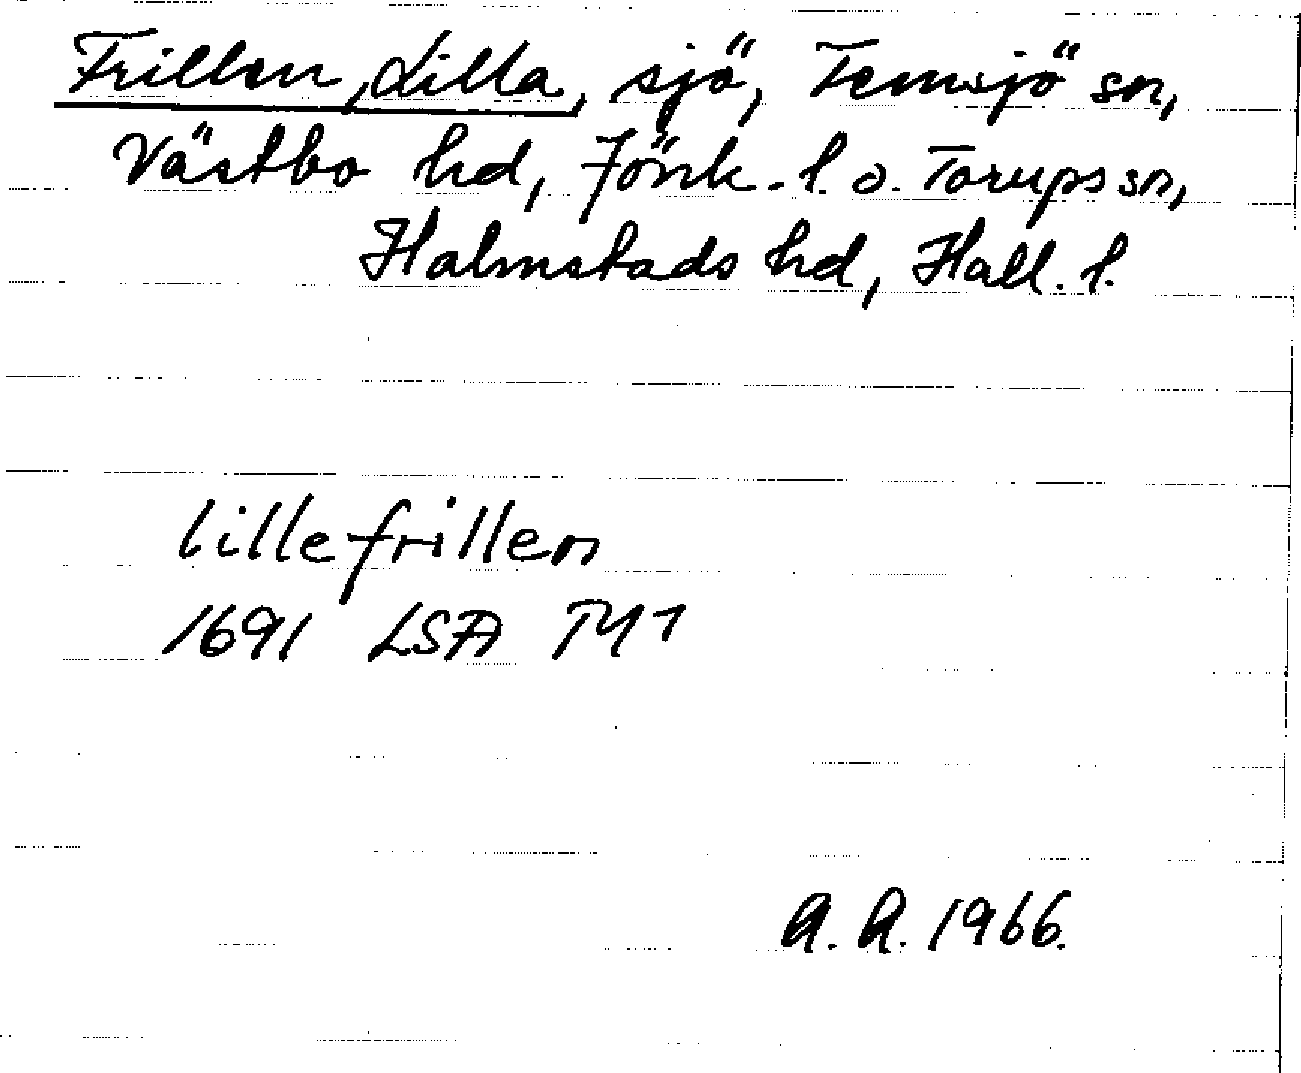 Frillen, Lilla, sjö, Femsjö sn,
Västbo hd, Jönk. l. o. Torups sn,
Halmstads hd, Hall. l.
lillefrillen
1691 LSA TY1
A. A. 1966.